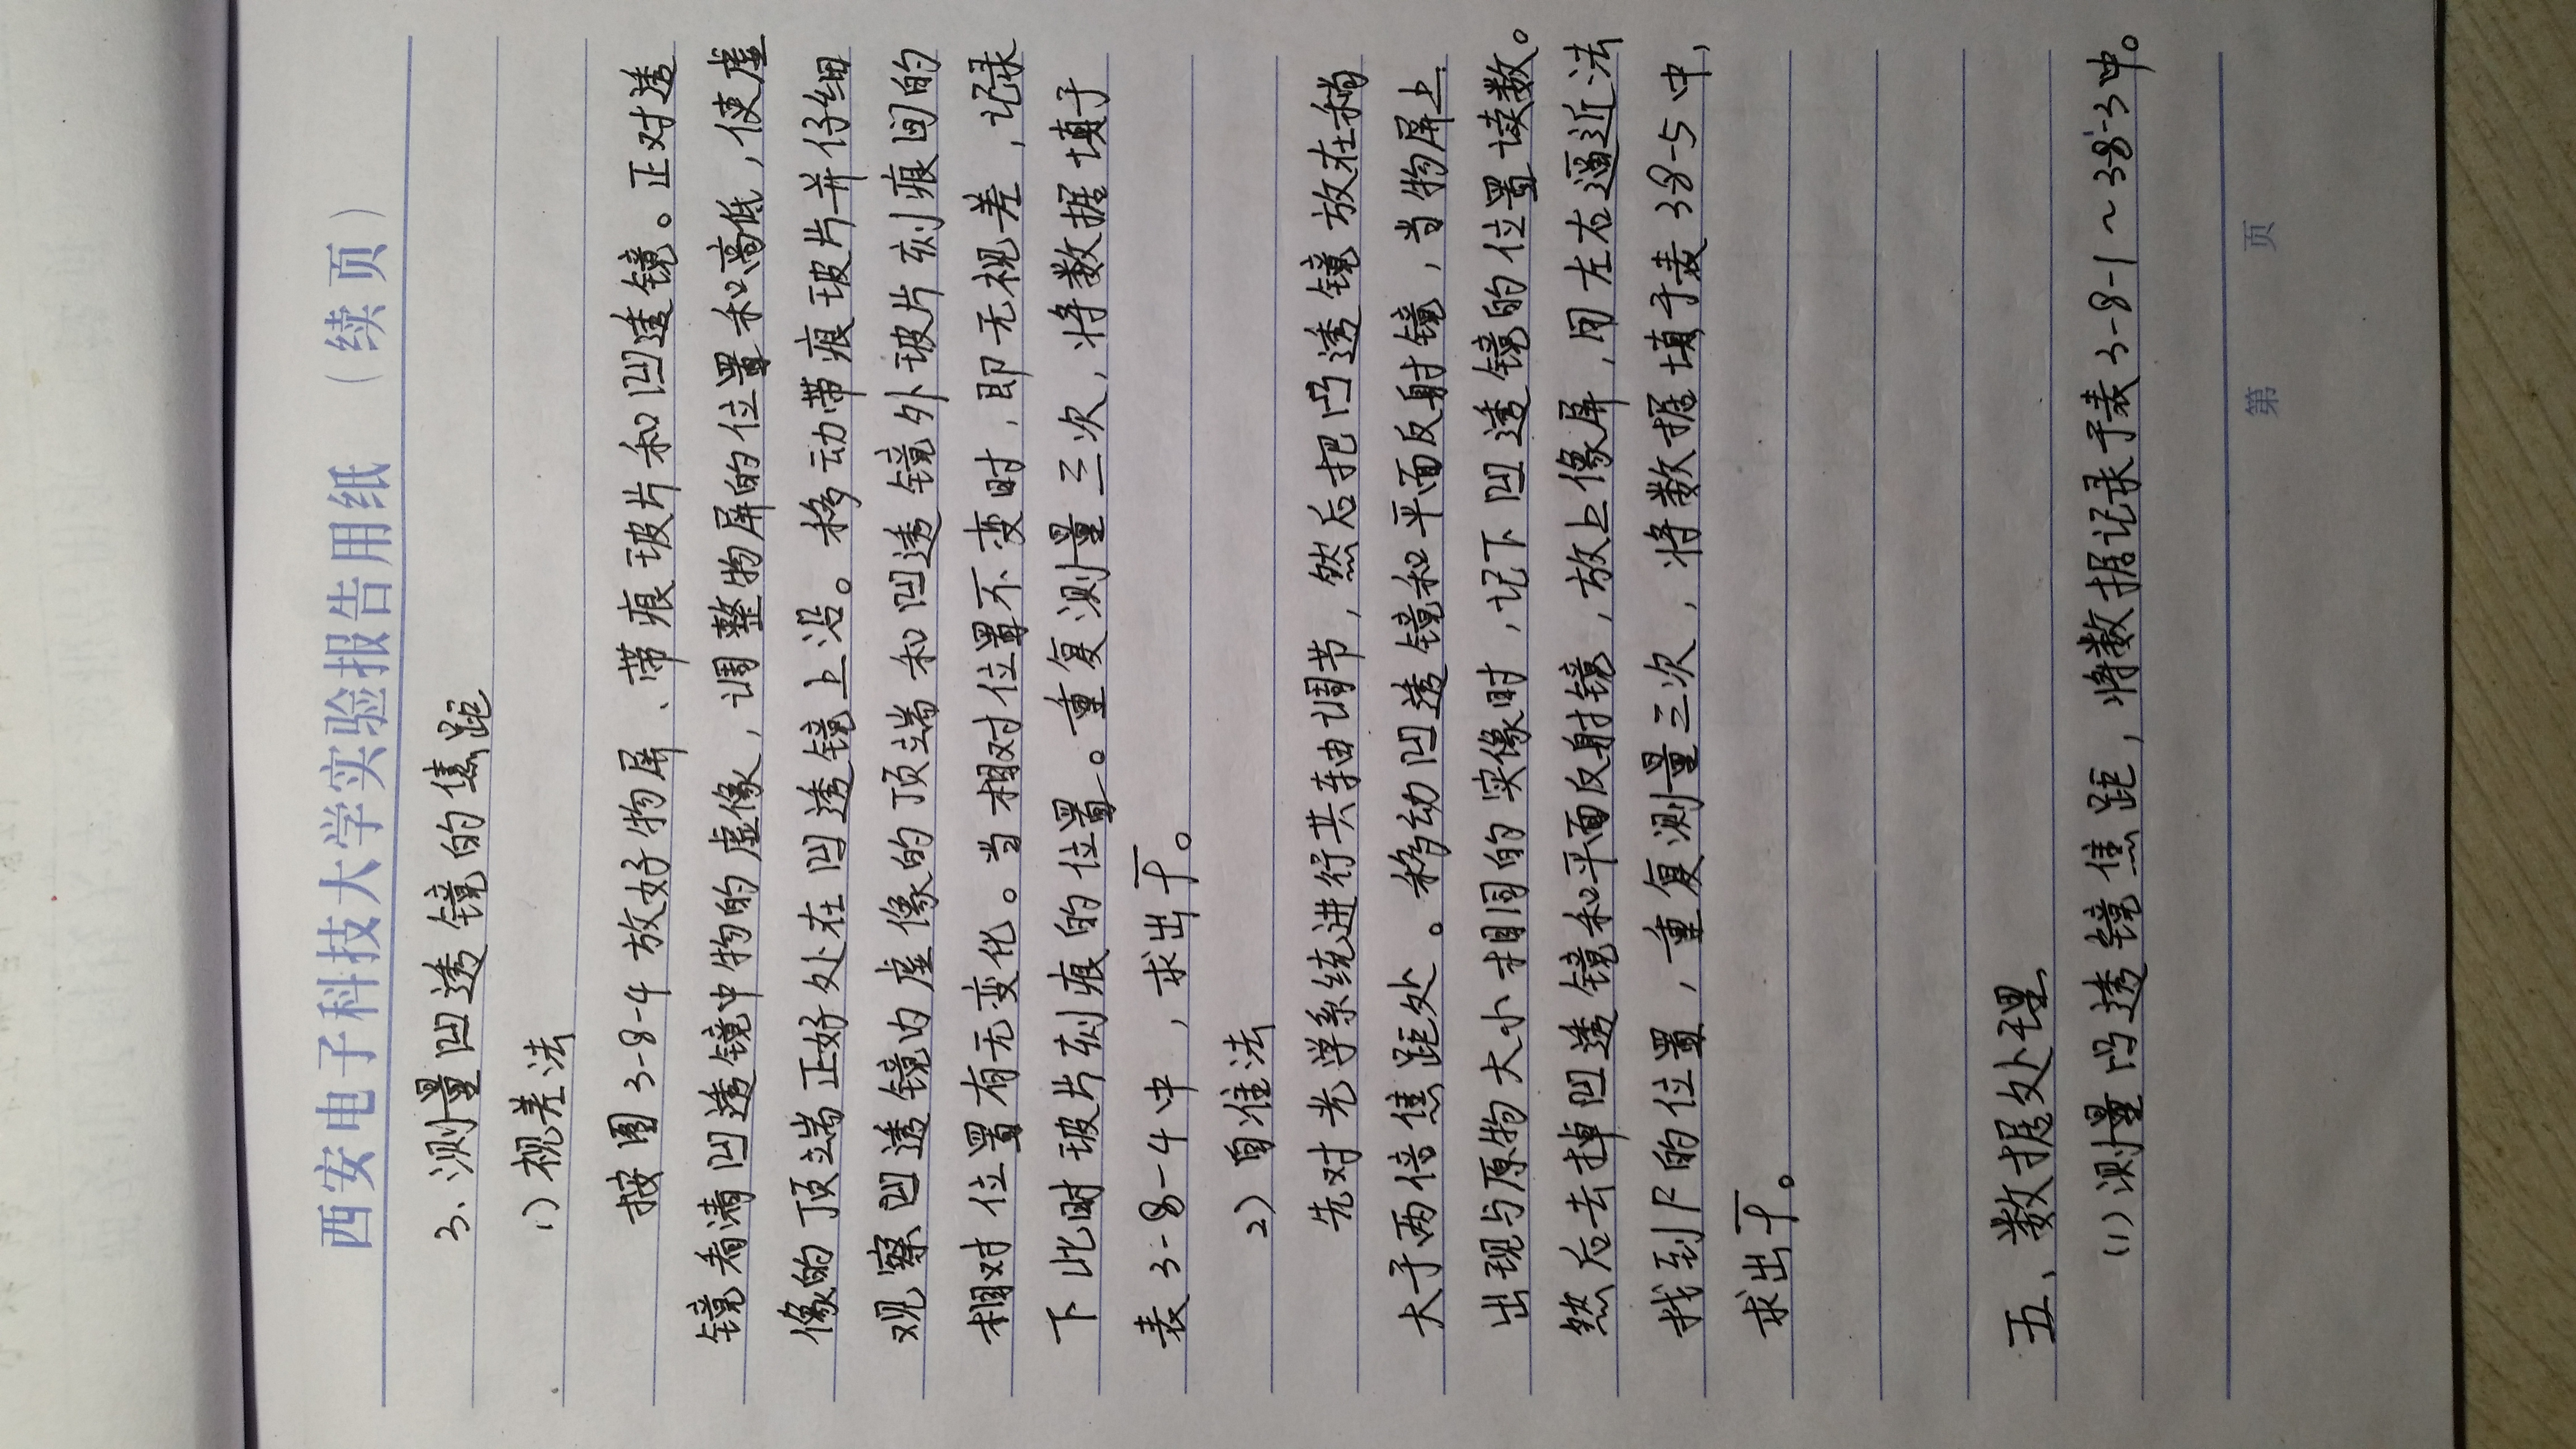 西安电子科技大学实验报告用纸（续页）
3、测量凹透镜的焦距
1）视差法
按图3-8-4放好物屏、带痕玻片和凹透镜。正对透
镜看清凹透镜中物的虚像，调整物屏的位置和高低，使虚
像的顶端正好处在凹透镜上沿。移动带痕玻片并仔细
观察凹透镜内虚像的顶端和凹透镜外玻片刻痕间的
相对位置有无变化。当相对位置不变时，即无视差，记录
下此时玻片刻痕的位置。重复测量三次，将数据填于
表3-8-4中，求出f̅。
2）自准法
先对光学系统进行共轴调节，然后把凸透镜放在稍
大于两倍焦距处。移动凹透镜和平面反射镜，当物屏上
出现与原物大小相同的实像时，记下凹透镜的位置读数。
然后去掉凹透镜和平面反射镜，放上像屏，用左右逼近法
找到F的位置，重复测量三次，将数据填于表38-5中，
求出f̅。
五、数据处理
(1)测量凸透镜焦距，将数据记录于表3-8-1~3-8-3中。
第 页